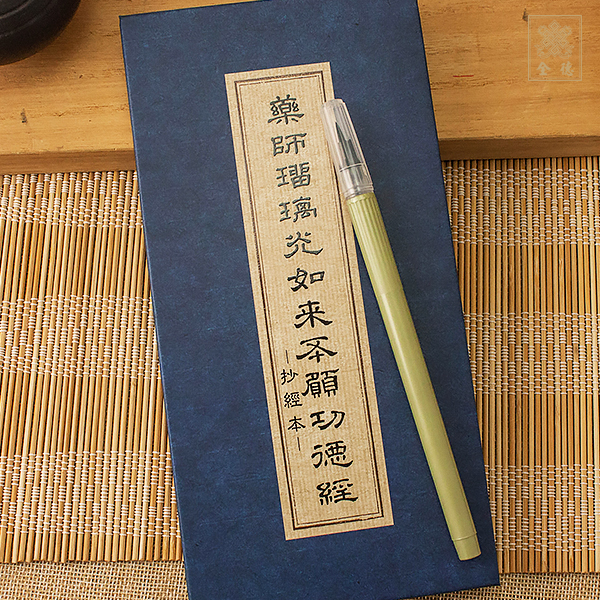 藥師瑠璃光如来本願功德經
—抄經本—
金德